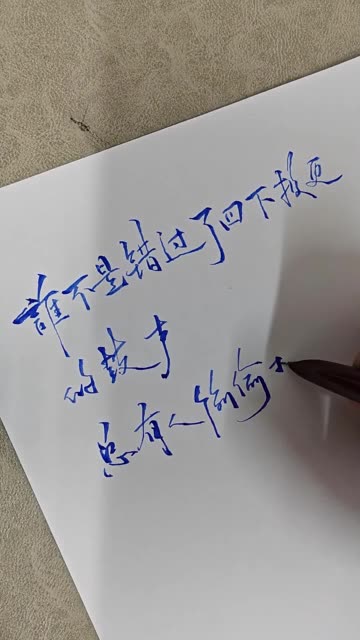 誰不是错过了四下报更
的鼓声
总有人偷偷